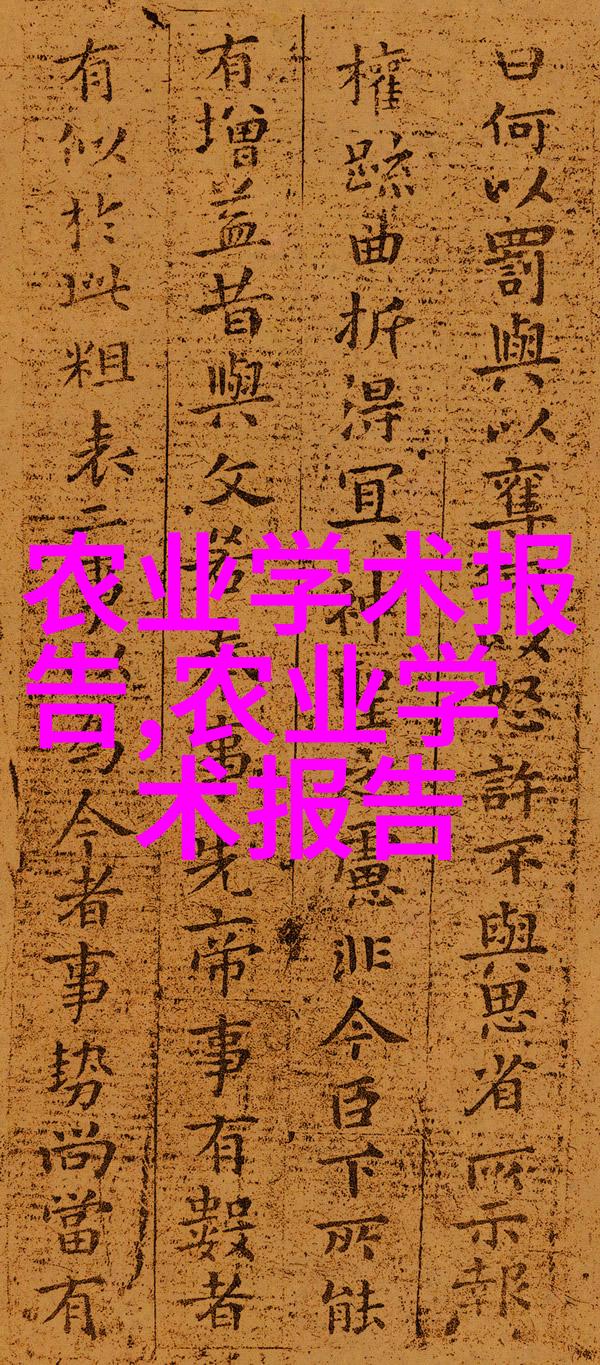 曰何以罰與以奪以怒許不與思省所示報
權踈曲折得冝神之慮非今臣下所能
有增益昔與文若事先帝事有數者
有似於此粗表二今者事勢尚當有
农业学术报
告,农业学
术报告